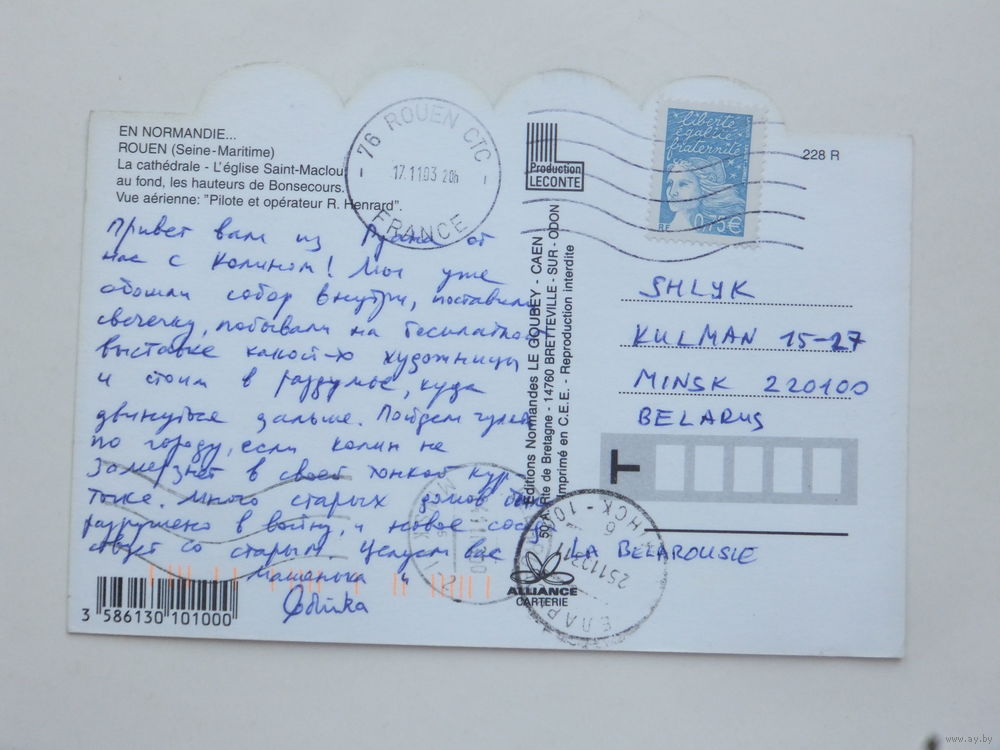 EN NORMANDIE...
ROUEN (Seine-Maritime)
La cathédrale - L'église Saint-Maclou
au fond, les hauteurs de Bonsecours.
Vue aérienne: "Pilote et opérateur R. Henrard".
76 ROUEN CTC
17.11.03 20h
FRANCE
Привет вам из Руана от
нас с Колином! Мы уже
обошли собор внутри, поставили
свечечку, побывали на бесплатной
выставке какой-то художницы
и стоим в раздумье, куда
двинуться дальше. Пойдем гулять
по городу, если Колин не
замерзнет в своей тонкой кур-
точке. Много старых домов было
разрушено в войну, и новое сосед-
ствует со старым. Целуем вас
Машенька и
3 586130 101000
Production
LECONTE
Editions Normandes LE GOUBEY - CAEN
Rte de Bretagne - 14760 BRETTEVILLE - SUR - ODON
Imprimé en C.E.E. - Reproduction interdite
ALLIANCE
CARTERIE
liberté
égalité
fraternité
RF
0,75€
228 R
SHLYK
KULMAN 15-27
MINSK 220100
BELARUS
T
LA BELAROUSIE
www.ay.by